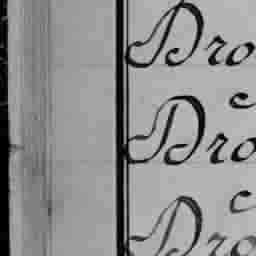 Dro
Dro
Dro